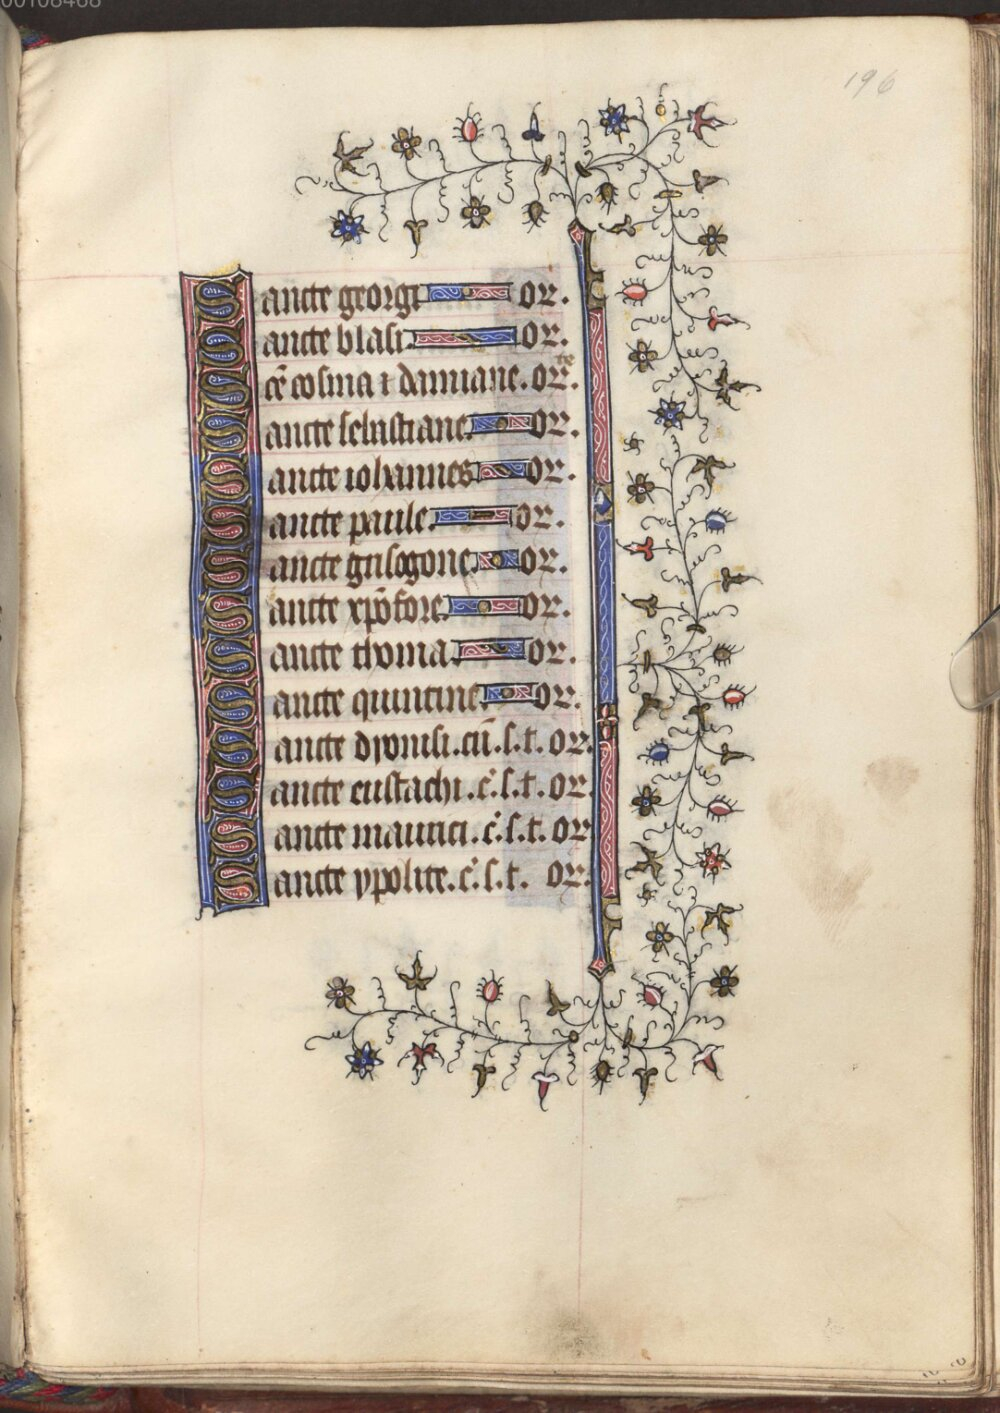 00108468
196
Sancte georgi or.
Sancte blasi. or.
Scē cosma ⁊ damiane. orte.
Sancte sebastiane. or.
Sancte iohannes or.
Sancte paule. or.
Sancte grisogone. or.
Sancte xp̄ofore. or.
Sancte thoma. or.
Sancte quintine. or.
Sancte dyonisi. cū. s. t. or.
Sancte eustachi. c̄. s. t. or.
Sancte maurici. c̄. s. t. or.
Sancte ypolite. c̄. s. t. or.